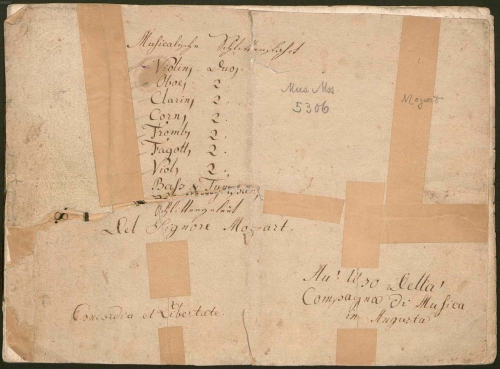 Musicalische Schlittenfahrt
Violin, Duo,
Oboe, 2.
Clarin, 2.
Corn, 2.
Tromb, 2.
Fagott, 2.
Viol, 2.
Bass &
Schlittengeläut
Del Signore Mozart.
Mus. Mss
5306
Mozart
Concordia et Libertate
Della
Compagnia di Musica
in Augusta